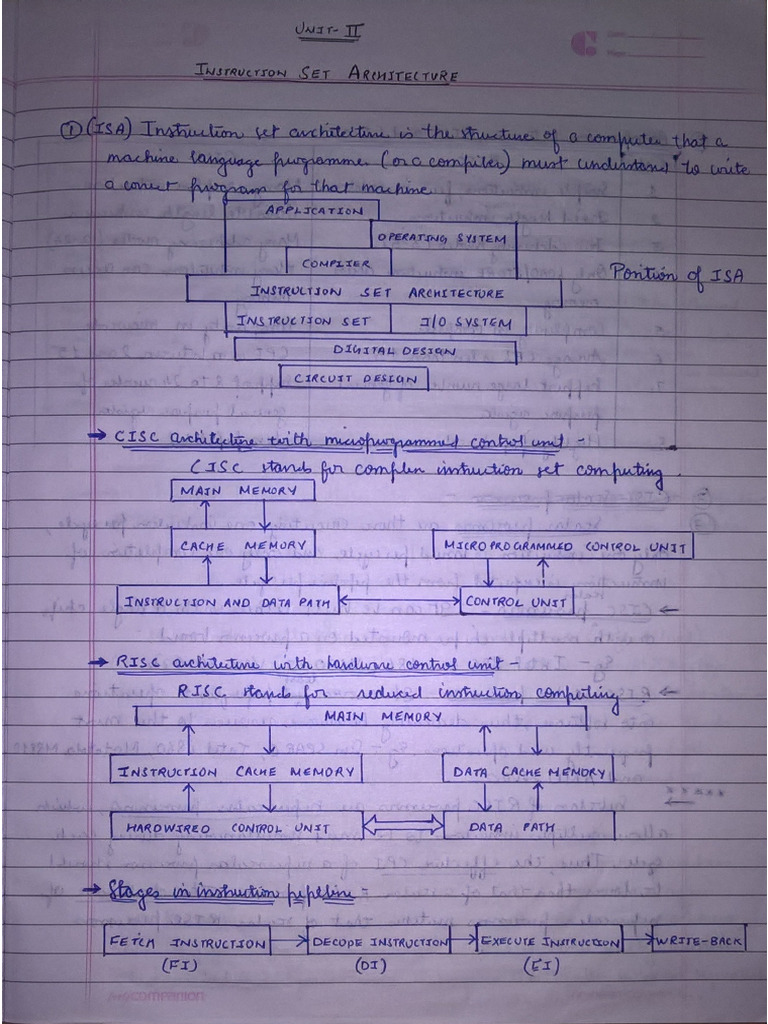 UNIT-II
INSTRUCTION SET ARCHITECTURE
① (ISA) Instruction set architecture is the structure of a computer that a
machine language programme (or a compiler) must understand to write
a correct program for that machine.
APPLICATION
OPERATING SYSTEM
COMPLIER
Position of ISA
INSTRUCTION SET ARCHITECTURE
INSTRUCTION SET I/O SYSTEM
DIGITAL DESIGN
CIRCUIT DESIGN
→ CISC architecture with microprogrammed control unit -
CISC stands for complex instruction set computing.
MAIN MEMORY
CACHE MEMORY MICROPROGRAMMED CONTROL UNIT
INSTRUCTION AND DATA PATH CONTROL UNIT
→ RISC architecture with hardware control unit -
RISC stands for reduced instruction computing.
MAIN MEMORY
INSTRUCTION CACHE MEMORY DATA CACHE MEMORY
HARDWIRED CONTROL UNIT DATA PATH
→ Stages in instruction pipeline -
FETCH INSTRUCTION → DECODE INSTRUCTION → EXECUTE INSTRUCTION → WRITE-BACK
(FI) (DI) (EI)